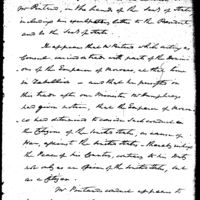 Mr Pintard, in the hands of the Secy of State
including an expostulatory letter to the President
and to the Secy of State.
It appears that Mr Pintard while acting as
Consul carried on trade with ports of the Domin-
ions of the Emperor of Morocco, as that have
in Rebellion and that he persists in
this trade after our Minister Mr Humphreys
had given notice, that the Emperor of Moroc-
co had determined to consider such conduct in
the Citizens of the United States, as causes of
War, against the United States; thereby risking
the Peace of his Country, contrary to his duty
not only as an officer of the United States, but
as a Citizen.
Mr Pintard's conduct appears to